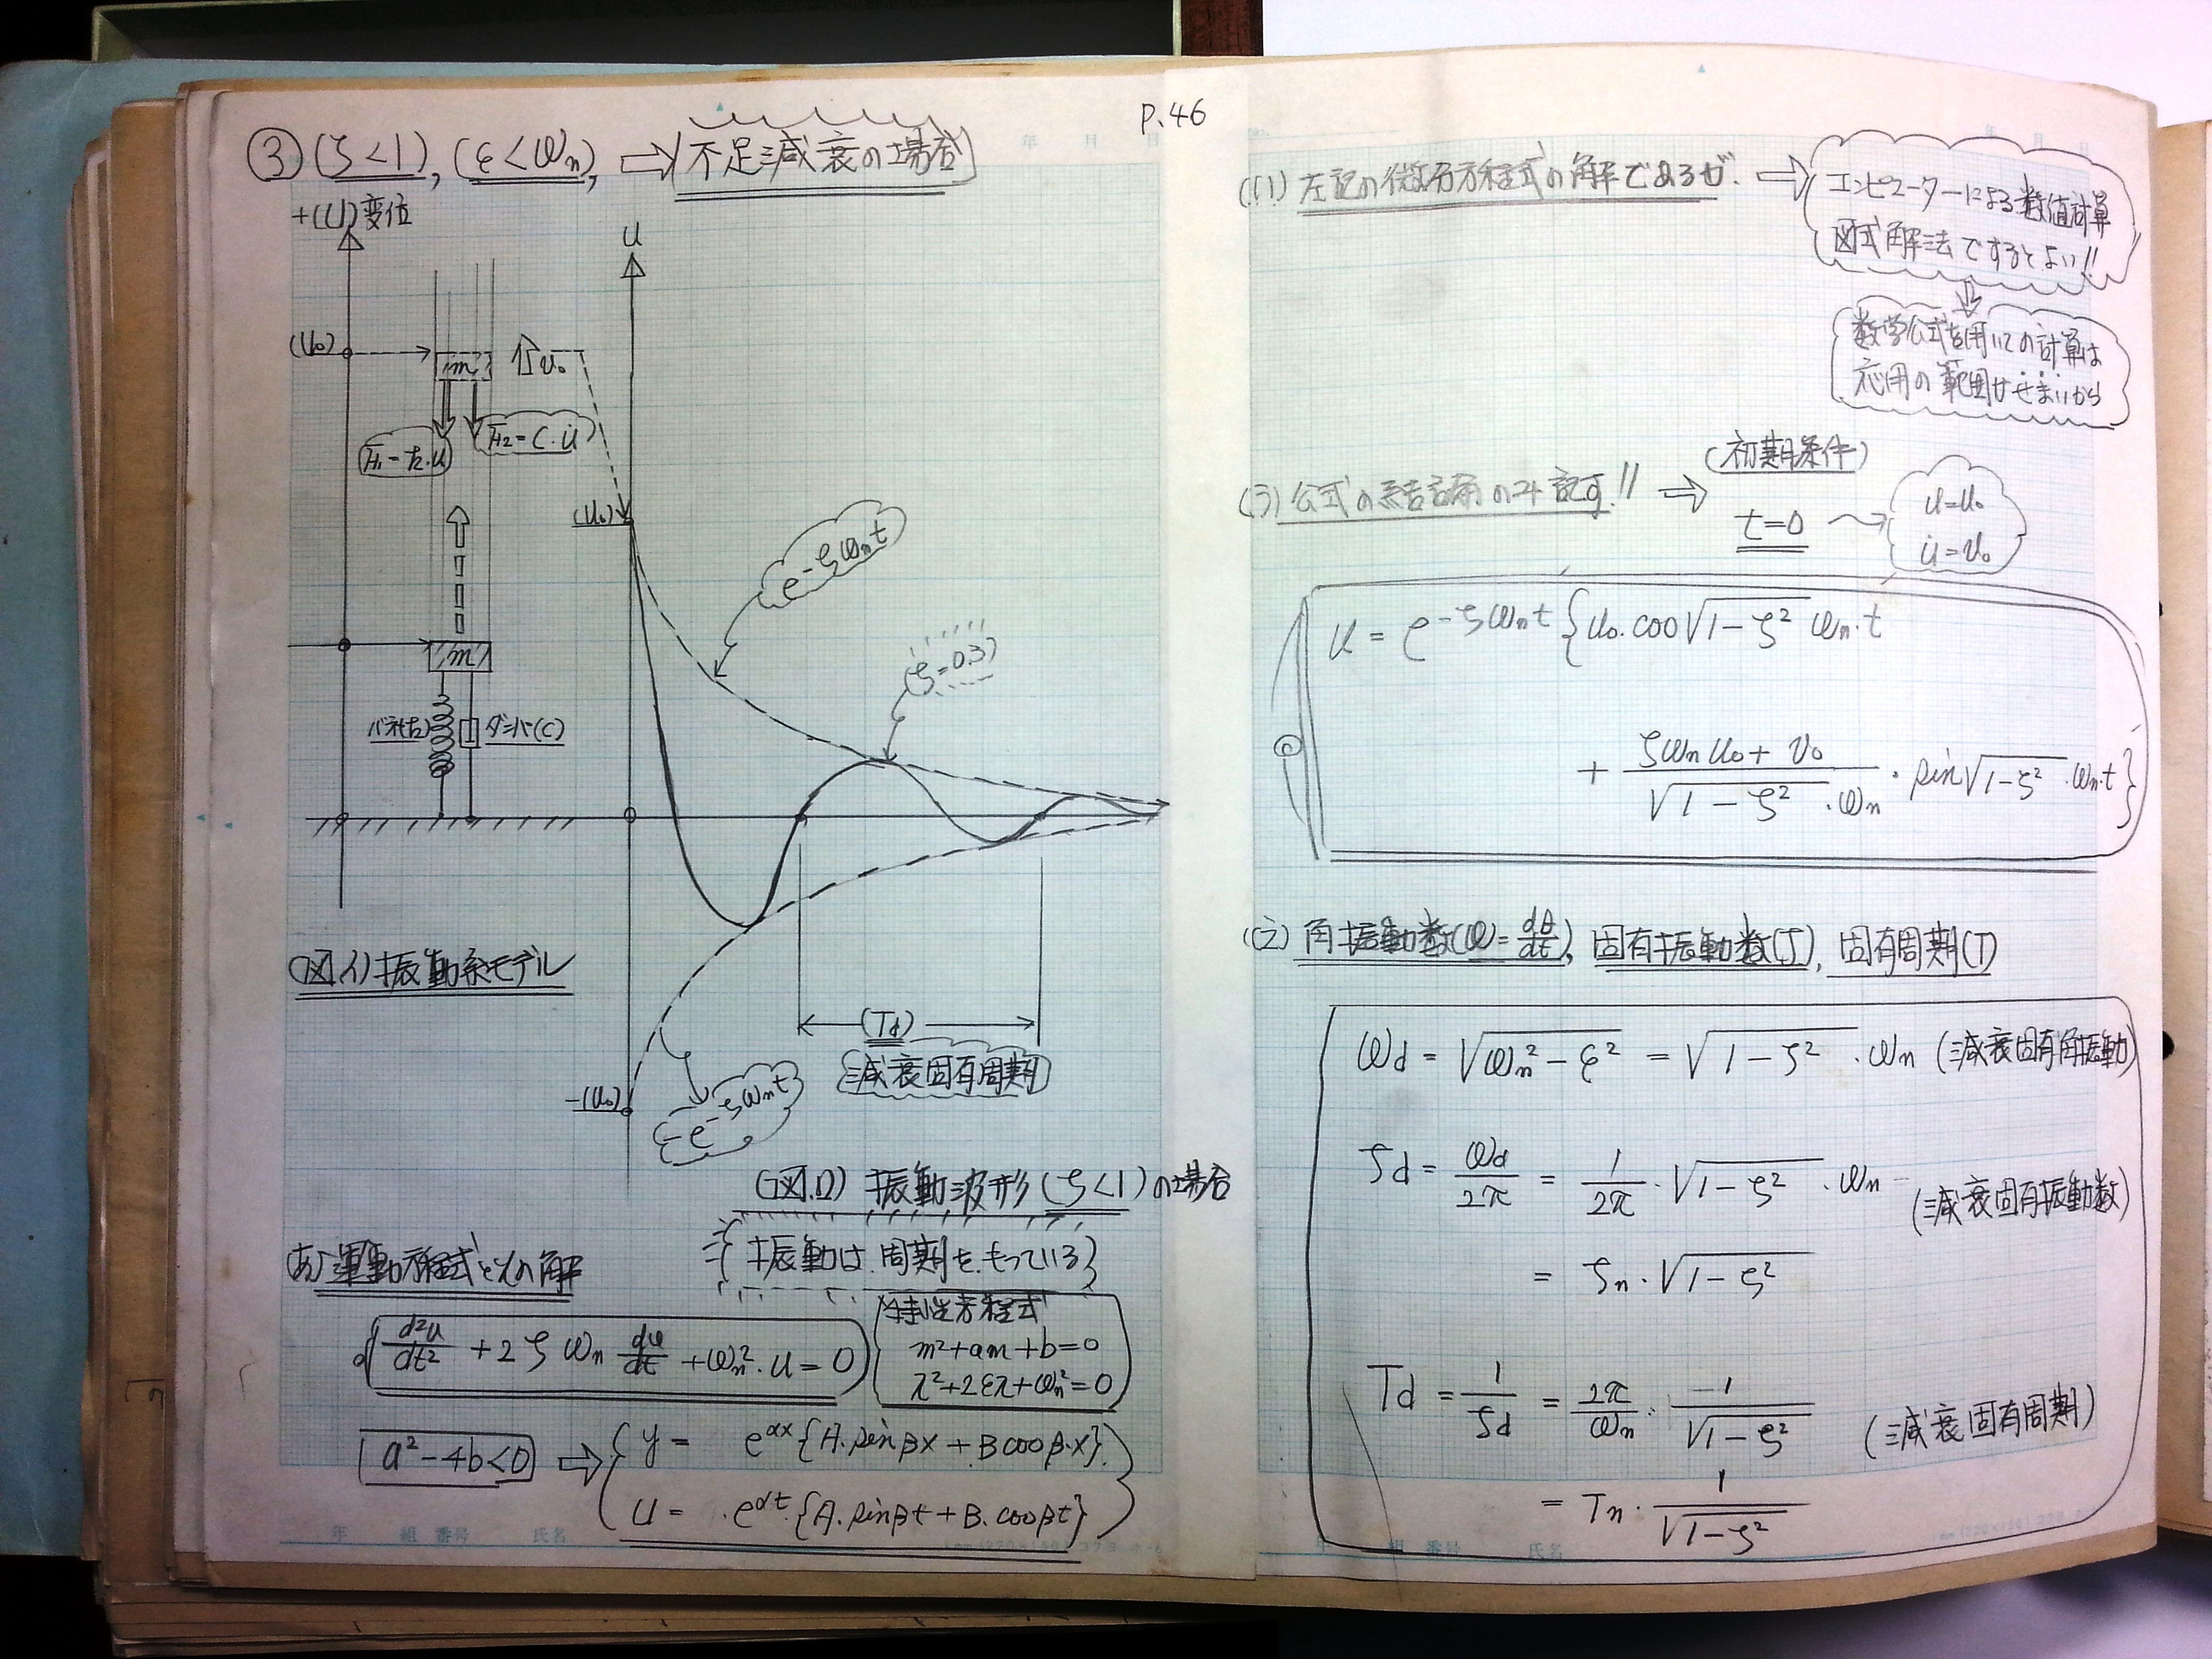 P.46
③ (ζ<1), (ε<ωn), ⇨ 不足減衰の場合
+(U)変位
U
(U₀)
m
v₀
F₁=k・u
F₂=C・u̇
(U₀)
e^{-ζωn t}
(ζ=0.3)
m
バネ(k)
ダンパ(C)
(図イ)振動系モデル
(Td)
減衰固有周期
-(U₀)
-e^{-ζωn t}
(図ロ) 振動波形 (ζ<1)の場合
振動は周期をもっている
(あ)運動方程式とその解
d²u/dt² + 2ζωn du/dt + ωn²・u = 0
特性方程式
m²+am+b=0
λ²+2ελ+ωn²=0
a²-4b<0 ⇨ y = e^{αx}{A・sinβx + Bcosβ・x}
U = e^{αt}{A・sinβt + B・cosβt}
(い) 左記の微分方程式の解であるが、 ⇨
コンピューターによる数値計算
図式解法でするとよい!!
数学公式を用いての計算は
応用の範囲がせまいから
(う) 公式の結論のみ記す!! ⇨ (初期条件)
t=0
u=u₀
u̇=v₀
u = e^{-ζωn t} {u₀・cos√(1-ζ²) ωn・t
+ (ζωn u₀ + v₀)/(√(1-ζ²)・ωn)・sin√(1-ζ²)・ωn・t}
(え) 角振動数(ω=dθ/dt), 固有振動数(f), 固有周期(T)
ωd = √(ωn²-ε²) = √(1-ζ²)・ωn (減衰固有角振動)
fd = ωd/2π = 1/2π・√(1-ζ²)・ωn (減衰固有振動数)
= fn・√(1-ζ²)
Td = 1/fd = 2π/ωn・1/√(1-ζ²) (減衰固有周期)
= Tn・1/√(1-ζ²)
年 組 番号 氏名
年 組 番号 氏名